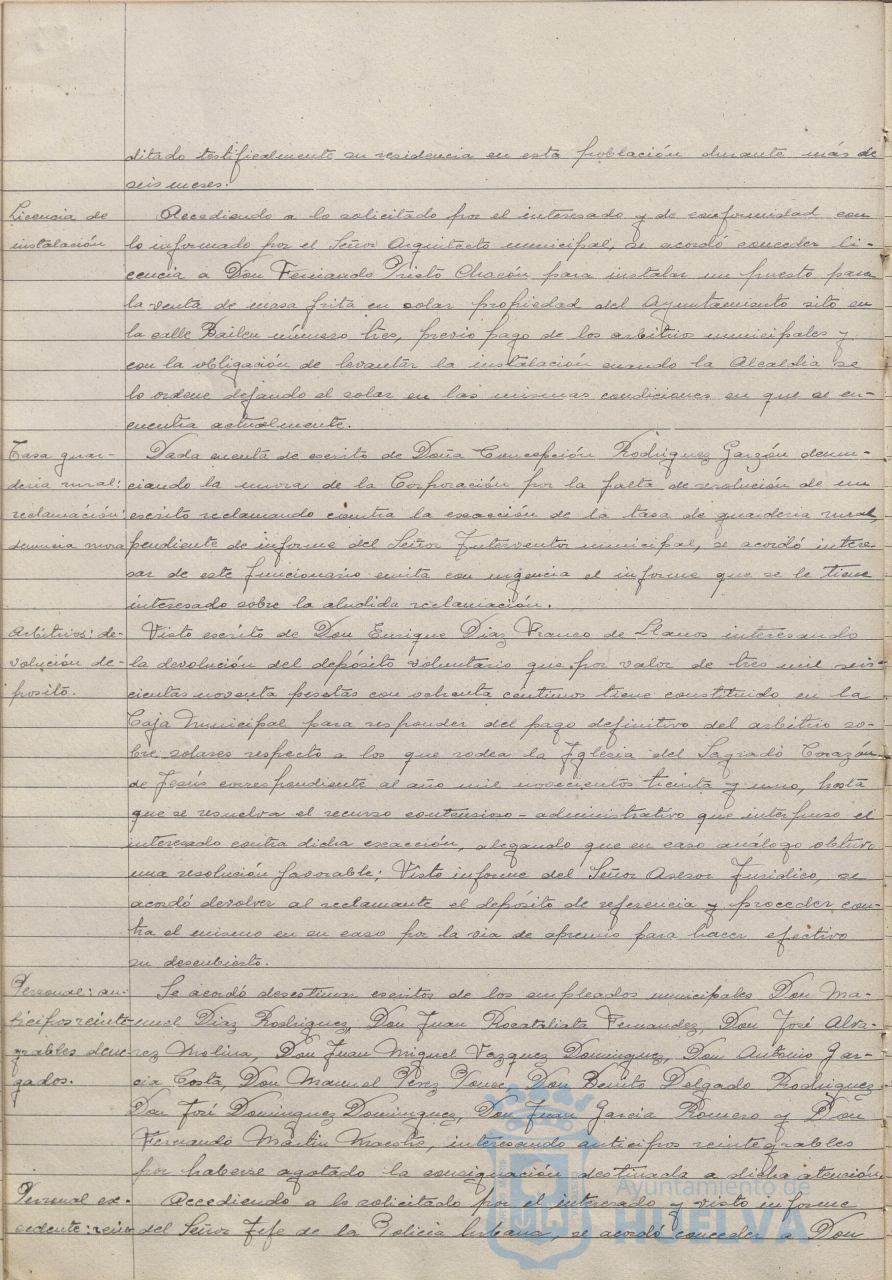 ditado testificalmente su residencia en esta población durante más de
seis meses.
Licencia de
instalación
Accediendo a lo solicitado por el interesado y de conformidad con
lo informado por el Señor Arquitecto municipal, se acordó conceder li-
cencia a Don Fernando Prieto Chacón para instalar un puesto para
la venta de masa frita en solar propiedad del Ayuntamiento sito en
la calle Bailen número tres, previo pago de los arbitrios municipales y
con la obligación de levantar la instalación cuando la Alcaldia se
lo ordene dejando el solar en las mismas condiciones en que se en-
cuentra actualmente.
Tasa guar-
deria rural:
reclamación:
denuncia mora
Dada cuenta de escrito de Doña Concepción Rodriguez Garzón denun-
ciando la mora de la Corporación por la falta de resolución de un
escrito reclamando contra la exacción de la tasa de guarderia rural,
pendiente de informe del Señor Interventor municipal, se acordó intere-
sar de este funcionario emita con urgencia el informe que se le tiene
interesado sobre la aludida reclamación.
Arbitrios: de-
volución de-
posito.
Visto escrito de Don Enrique Diaz Franco de Llanos interesando
la devolución del depósito voluntario que por valor de tres mil seis-
cientas noventa pesetas con ochenta céntimos tiene constituido en la
Caja Municipal para responder del pago definitivo del arbitrio so-
bre solares respecto a los que rodea la Iglesia del Sagrado Corazón
de Jesús correspondiente al año mil novecientos treinta y uno, hasta
que se resuelva el recurso contensioso-administrativo que interpuso el
interesado contra dicha exacción, alegando que en caso análogo obtuvo
una resolución favorable; Visto informe del Señor Asesor Juridico, se
acordó devolver al reclamante el depósito de referencia y proceder con-
tra el mismo en su caso por la via de apremio para hacer efectivo
su descubierto.
Personal: an-
ticipos reinte-
grables dene-
gados.
Se acordó desestimar escritos de los empleados municipales Don Ma-
nuel Diaz Rodriguez, Don Juan Fernandez, Don José Alva-
rez Molina, Don Juan Miguel Vazquez Dominguez, Don Antonio Gar-
cia Costa, Don Manuel Pérez Ponce, Don Benito Delgado Rodriguez
Don José Dominguez Dominguez, Don Juan Garcia Romero y Don
Fernando Martin Maestre, interesando anticipos reintegrables
por haberse agotado la consignación destinada a dicha atención.
Personal ex-
cedente: rein-
Accediendo a lo solicitado por el interesado y visto informe
del Señor Jefe de la Policia Urbana, se acordó conceder a Don
Ayuntamiento de
HUELVA